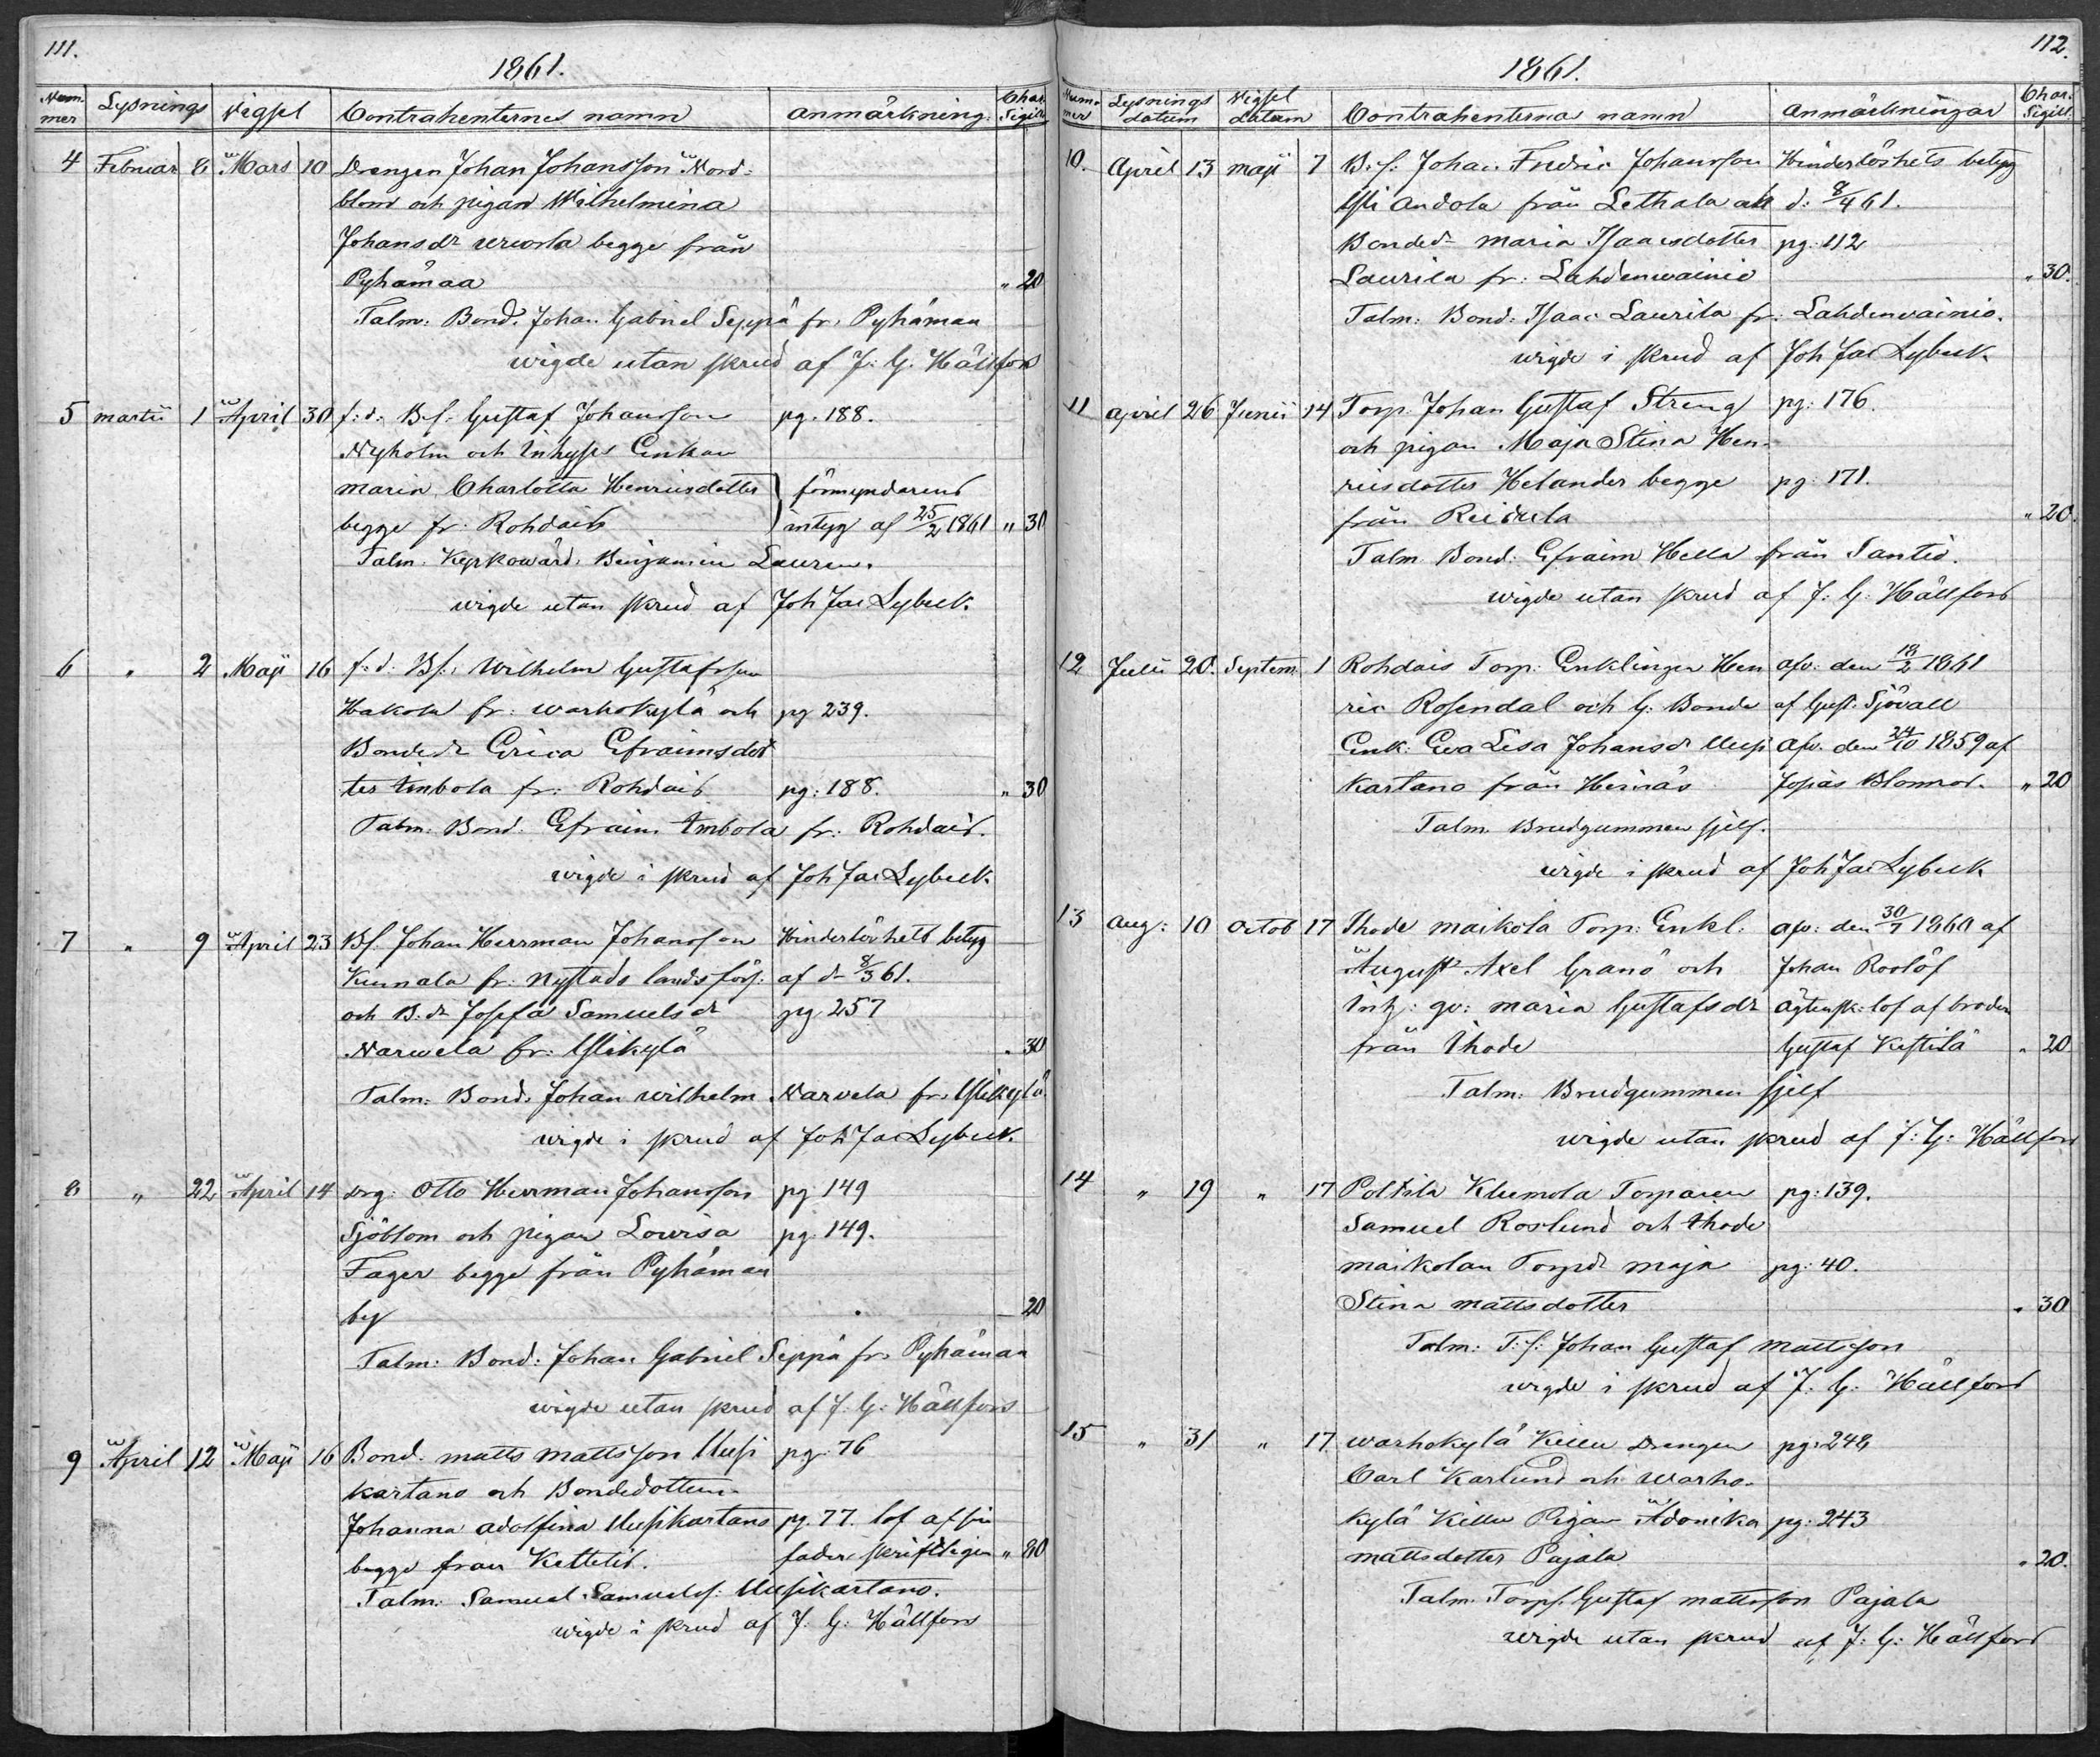 111.
1861.
Nummer Lysnings Vigsel Contrahenternes namn Anmärkning. Char. Sigill.
4 Februar 8 Mars 10 Drengen Johan Johansson Nord-
blom och pigan Wilhelmina
Johansdr begge från
Pyhämaa " 20
Talm: Bond. Johan Gabriel Seppä fr. Pyhämaa
wigde utan skrud af J. G. Hällfors
5 Martii 1 April 30 f: d: B.f. Gustaf Johansson pg. 188.
Nyholm och Inhyses Enkan
Maria Charlotta Henricsdotter förmyndarens
begge fr: Rohdais intyg af 25/2 1861 " 30
Talm. Kyrkowärd. Benjamin Lauren.
wigde utan skrud af Joh Jac Lybeck.
6 " 2 Maji 16 f: d: Bf. Wilhelm Gustafsson
Hakola fr: Warhokylä och pg 239.
Bondedr Erica Efraimsdot
ter Ambola fr: Rohdais pg: 188. " 30
Talm. Bond: Efraim Ambola fr: Rohdais.
wigde i skrud af Joh Jac Lybeck.
7 " 9 April 23 Bf. Johan Herrman Johansson Hinderlöshets betyg
Kunnala fr: Nystads landsförs: af d- 8/3 61.
och B. dr Josefa Samuelsdr pg 257
Narvela fr: Ylikylä " 30
Talm: Bond. Johan Wilhelm Narvela fr. Ylikylä
wigde i skrud af Joh Jac Lybeck.
8 " 22 April 14 drg: Otto Herrman Johansson pg 149
Sjöblom och pigan Lovisa pg. 149.
Fager begge från Pyhämaa
by 20
Talm: Bond: Johan Gabriel Seppä fr. Pyhämaa
wigde utan skrud af J. G. Hällfors
9 April 12 Maji 16 Bond. Matts Mattsson Uusi pg. 76
kartano och Bondedottern
Johanna Adolfina Uusikartano pg. 77. lof af sin
begge från Kettelis. fader skriftligen " 80
Talm: Samuel Samuelsf: Uusikartano.
wigde i skrud af J. G: Hällfors
112.
1861.
Nummer Lysnings datum Vigsel datum Contrahenterna namn Anmärkningar Char. Sigill.
10. April 13 Maji 7 B. f. Johan Fredric Johansson Hinderlöshets betyg
Yli Andola från Lethala d: 8/4 61.
Bonded- Maria Isaacsdotter pg. 112
Laurila fr: Lahdenwainio " 30.
Talm: Bond: Isaac Laurila fr: Lahdenwainio.
wigde i skrud af Joh Jac Lybeck
11 April 26 Junii 14 Torp. Johan Gustaf Streng pg: 176.
och pigan Maja Stina Hen-
ricsdotter Helander begge pg: 171.
från Reidula " 20.
Talm. Bond: Efraim Hella från Santio.
wigde utan skrud af J: G: Hällfors
12 Julii 20. Septem. 1 Rohdais Torp: Enklingen Hen afv: den 18/2 1861
ric Rosendal och G: Bonde af Gust. Sjövall
Enk: Eva Lisa Johansdr Uusi afv. den 24/10 1859 af
kartano från Heinäs Josias Blomros. " 20
Talm. Brudgummen sjelf.
wigde i skrud af Joh Jac Lybeck
13 Aug: 10 Octob 17 Ihode Maikola Torp: Enkl. afv: den 30/7 1860 af
August Axel Granö och Johan Roslöf
Inh: qv: Maria Gustafsdr ägtensk: lof af broder
från Ihode Gustaf Kestilä " 20
Talm: Brudgummen sjelf
wigde utan skrud af J: G: Hällfors
14 " 19 " 17 Poltila Klemola Torparen pg: 139.
Samuel Roslund och Ihode
Maikolan Torpdr Maja pg: 40.
Stina Mattsdotter " 30
Talm: T. f: Johan Gustaf Mattsson
wigde i skrud af J. G: Hällfors
15 " 31 " 17 Warhokylä Killu Drengen pg: 248
Carl Karlund och Warho-
kylä Killu Pigan Adonika pg: 243
Mattsdotter Pajala " 20.
Talm. Torpf. Gustaf Mattsson Pajala
wigde utan skrud af J: G: Hällfors